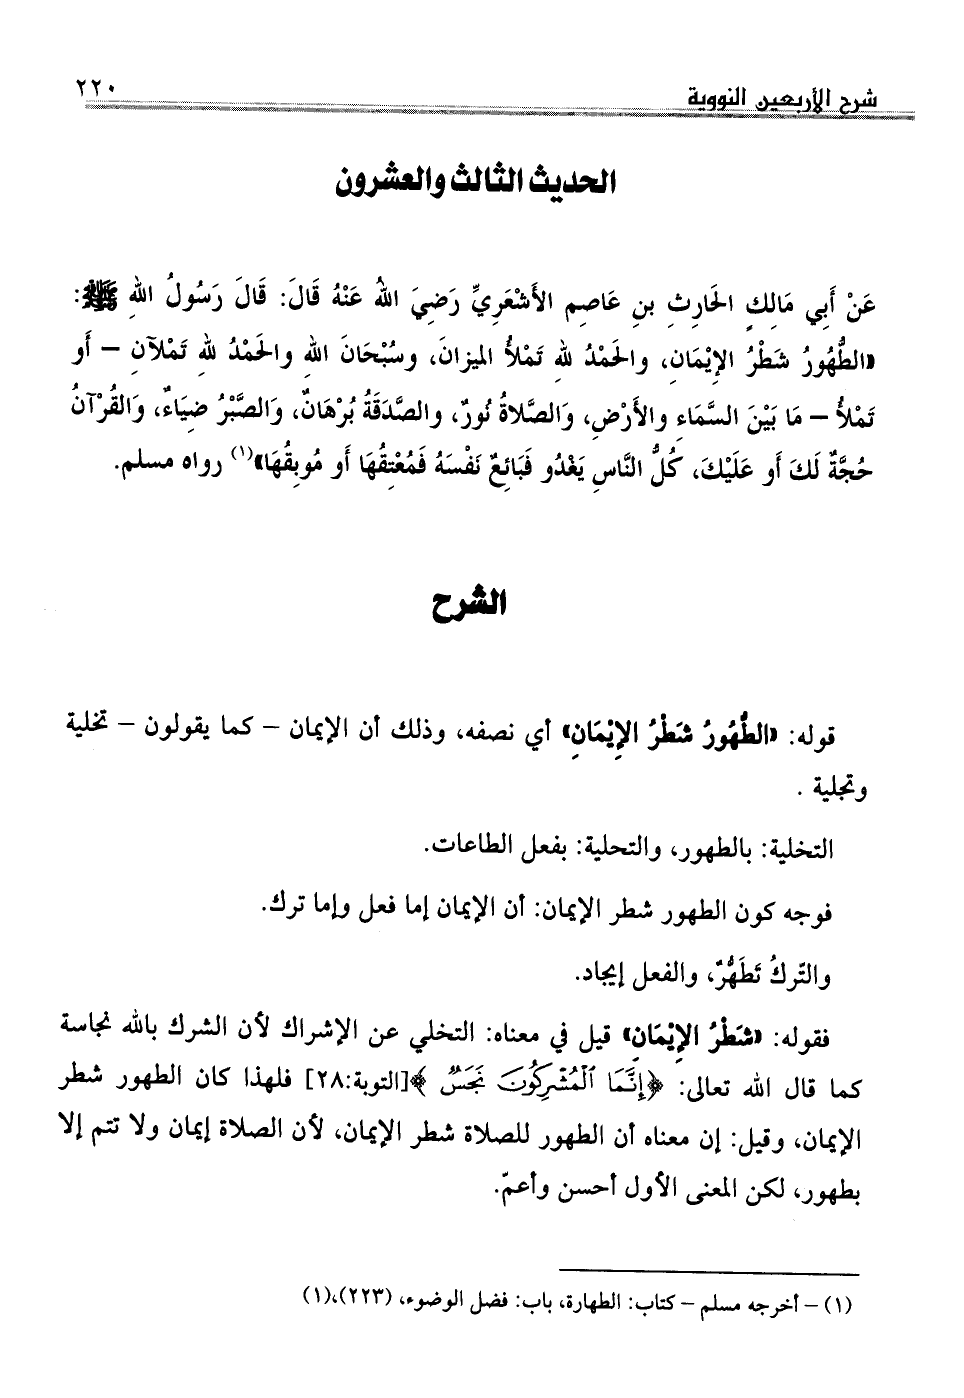 شرح الأربعين النووية ٢٢٠
الحديث الثالث والعشرون
عَنْ أَبي مَالِكٍ الحَارِثِ بنِ عَاصِم الأَشْعَرِيِّ رَضِيَ اللهُ عَنْهُ قَالَ: قَالَ رَسُولُ اللهِ ﷺ:
«الطُّهُورُ شَطْرُ الإِيْمَانِ، والحَمْدُ للهِ تَمْلأُ الميزانَ، وسُبْحَانَ اللهِ والحَمْدُ للهِ تَمْلآنِ – أَو
تَمْلأُ – مَا بَيْنَ السَّمَاءِ والأَرْضِ، وَالصَّلاةُ نُورٌ، والصَّدَقَةُ بُرْهَانٌ، وَالصَّبْرُ ضِيَاءٌ، وَالقُرْآنُ
حُجَّةٌ لَكَ أَو عَلَيْكَ، كُلُّ النَّاسِ يَغْدُو فَبَائِعٌ نَفْسَهُ فَمُعْتِقُهَا أَو مُوبِقُهَا»(١) رواه مسلم.
الشرح
قوله: «الطُّهُورُ شَطْرُ الإِيْمَانِ» أي نصفه، وذلك أن الإيمان – كما يقولون – تخلية
وتجلية .
التخلية: بالطهور، والتحلية: بفعل الطاعات.
فوجه كون الطهور شطر الإيمان: أن الإيمان إما فعل وإما ترك.
والتّركُ تَطَهُّرٌ، والفعل إيجاد.
فقوله: «شَطْرُ الإِيْمَانِ» قيل في معناه: التخلي عن الإشراك لأن الشرك بالله نجاسة
كما قال الله تعالى: ﴿إِنَّمَا ٱلْمُشْرِكُونَ نَجَسٌ﴾[التوبة:٢٨] فلهذا كان الطهور شطر
الإيمان، وقيل: إن معناه أن الطهور للصلاة شطر الإيمان، لأن الصلاة إيمان ولا تتم إلا
بطهور، لكن المعنى الأول أحسن وأعمّ.
(١) – أخرجه مسلم – كتاب: الطهارة، باب: فضل الوضوء، (٢٢٣)،(١)